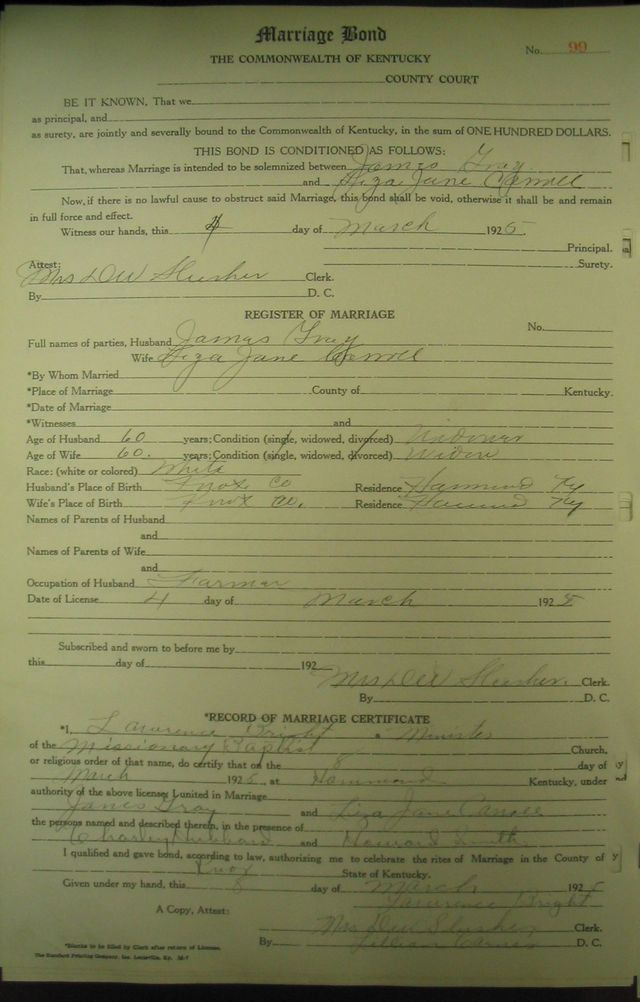 Marriage Bond
No. 99
THE COMMONWEALTH OF KENTUCKY
COUNTY COURT
BE IT KNOWN, That we
as principal, and
as surety, are jointly and severally bound to the Commonwealth of Kentucky, in the sum of ONE HUNDRED DOLLARS.
THIS BOND IS CONDITIONED AS FOLLOWS:
That, whereas Marriage is intended to be solemnized between James Gray
and Liza Jane
Now, if there is no lawful cause to obstruct said Marriage, this bond shall be void, otherwise it shall be and remain
in full force and effect.
Witness our hands, this 4 day of March 1925.
Principal.
Attest: Surety.
Mrs D W Slusher Clerk.
By D. C.
REGISTER OF MARRIAGE
No.
Full names of parties, Husband James Gray
Wife Liza Jane
*By Whom Married
*Place of Marriage County of Kentucky.
*Date of Marriage
*Witnesses and
Age of Husband 60 years; Condition (single, widowed, divorced) Widower
Age of Wife 60. years; Condition (single, widowed, divorced) Widow
Race: (white or colored) White
Husband's Place of Birth Knox Co Residence Hammond Ky
Wife's Place of Birth Knox Co. Residence Hammond Ky
Names of Parents of Husband
and
Names of Parents of Wife
and
Occupation of Husband Farmar
Date of License 4 day of March 1925
Subscribed and sworn to before me by
this day of 192
Mrs D W Slusher. Clerk.
By D. C.
*RECORD OF MARRIAGE CERTIFICATE
*I, Lawrence Bright a Minister
of the Missionary Baptist Church,
or religious order of that name, do certify that on the 8 day of
March 1925, at Hammond Kentucky, under
authority of the above license, I united in Marriage
James Gray and Liza Jane
the persons named and described therein, in the presence of
Charley Hubbard and Howard Smith
I qualified and gave bond, according to law, authorizing me to celebrate the rites of Marriage in the County of
Knox State of Kentucky.
Given under my hand, this 8 day of March 192
Lawrence Bright
A Copy, Attest:
Mrs D W Slusher Clerk.
By Lillian D. C.
*Blanks to be filled by Clerk after return of License.
The Standard Printing Company, Inc. Louisville, Ky.